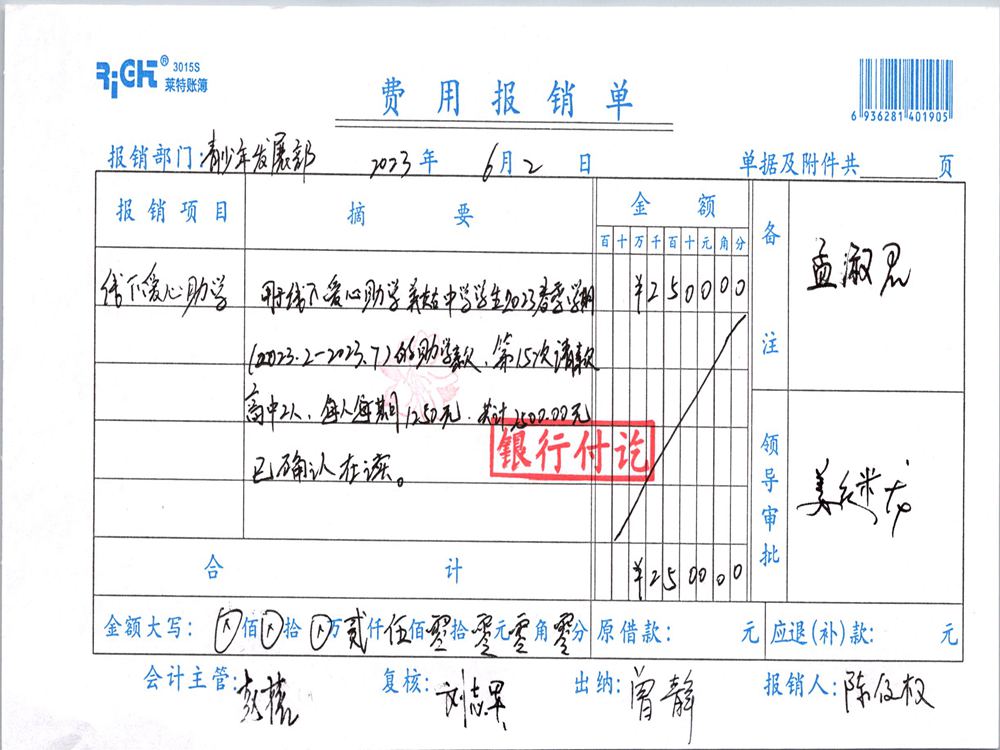 RiGHT® 3015S
莱特账簿
费用报销单
6 936281 401905
报销部门:青少年发展部 2023年 6月2日 单据及附件共 页
报销项目 摘要 金额 备注
百十万千百十元角分
孟淑君
线下爱心助学 用于线下爱心助学 中学学生2023春季学期 ¥250000
(2023.2-2023.7)的助学款、第15次请款
高中2人、每人每期1250元.共计2500.00元
银行付讫
已确认在读。
领导审批 姜继
合计 ¥250000
金额大写: 万佰 拾 万贰仟伍佰零拾零元零角零分 原借款: 元 应退(补)款: 元
会计主管: 复核:刘志军 出纳:曾静 报销人:陈 权